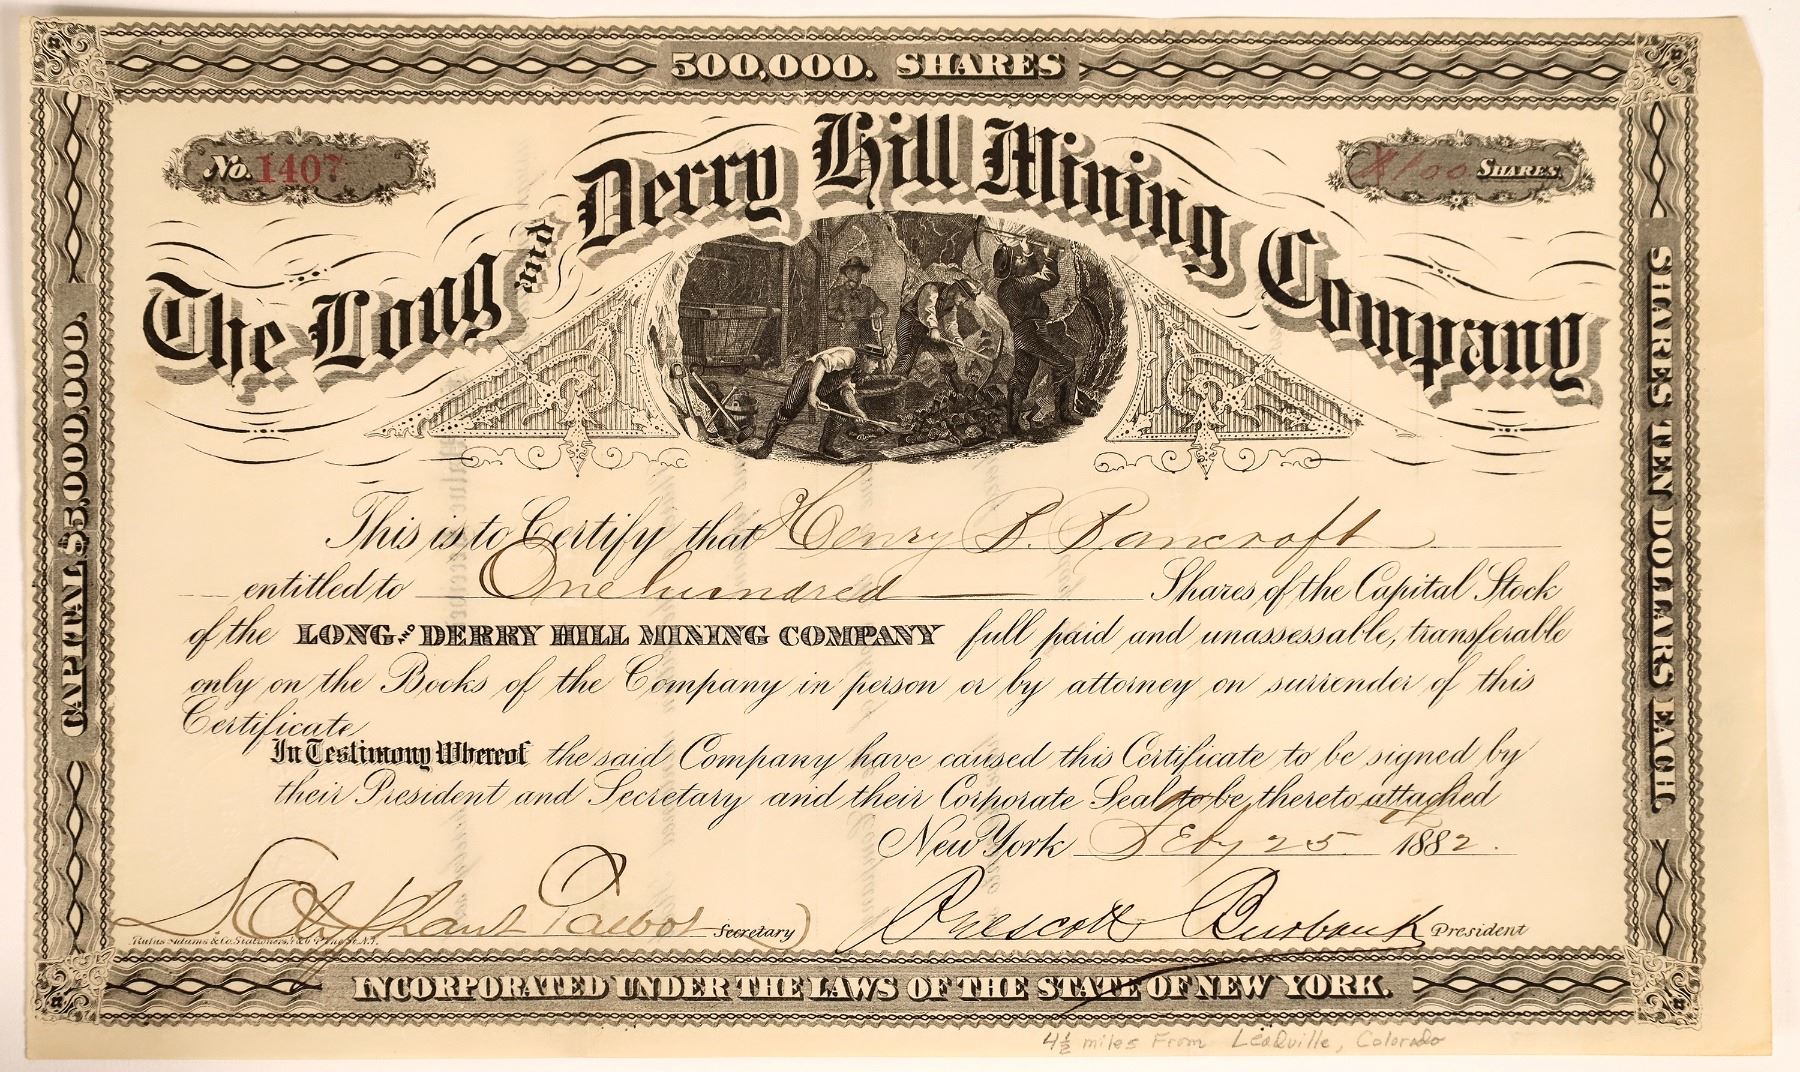 500,000. SHARES
No. 1407
100 SHARES
The Long and Derry Hill Mining Company
CAPITAL $5,000,000.
SHARES TEN DOLLARS EACH.
This is to Certify that Henry B. Bancroft
entitled to One hundred Shares of the Capital Stock
of the LONG AND DERRY HILL MINING COMPANY full paid and unassessable, transferable
only on the Books of the Company in person or by attorney on surrender of this
Certificate
In Testimony Whereof the said Company have caused this Certificate to be signed by
their President and Secretary and their Corporate Seal to be thereto attached
New York Feby 25 1882.
Olyphant Talbot Secretary
Prescott Burbank President
Rufus Adams & Co. Stationers, N.Y.
INCORPORATED UNDER THE LAWS OF THE STATE OF NEW YORK.
4½ miles From Leadville, Colorado